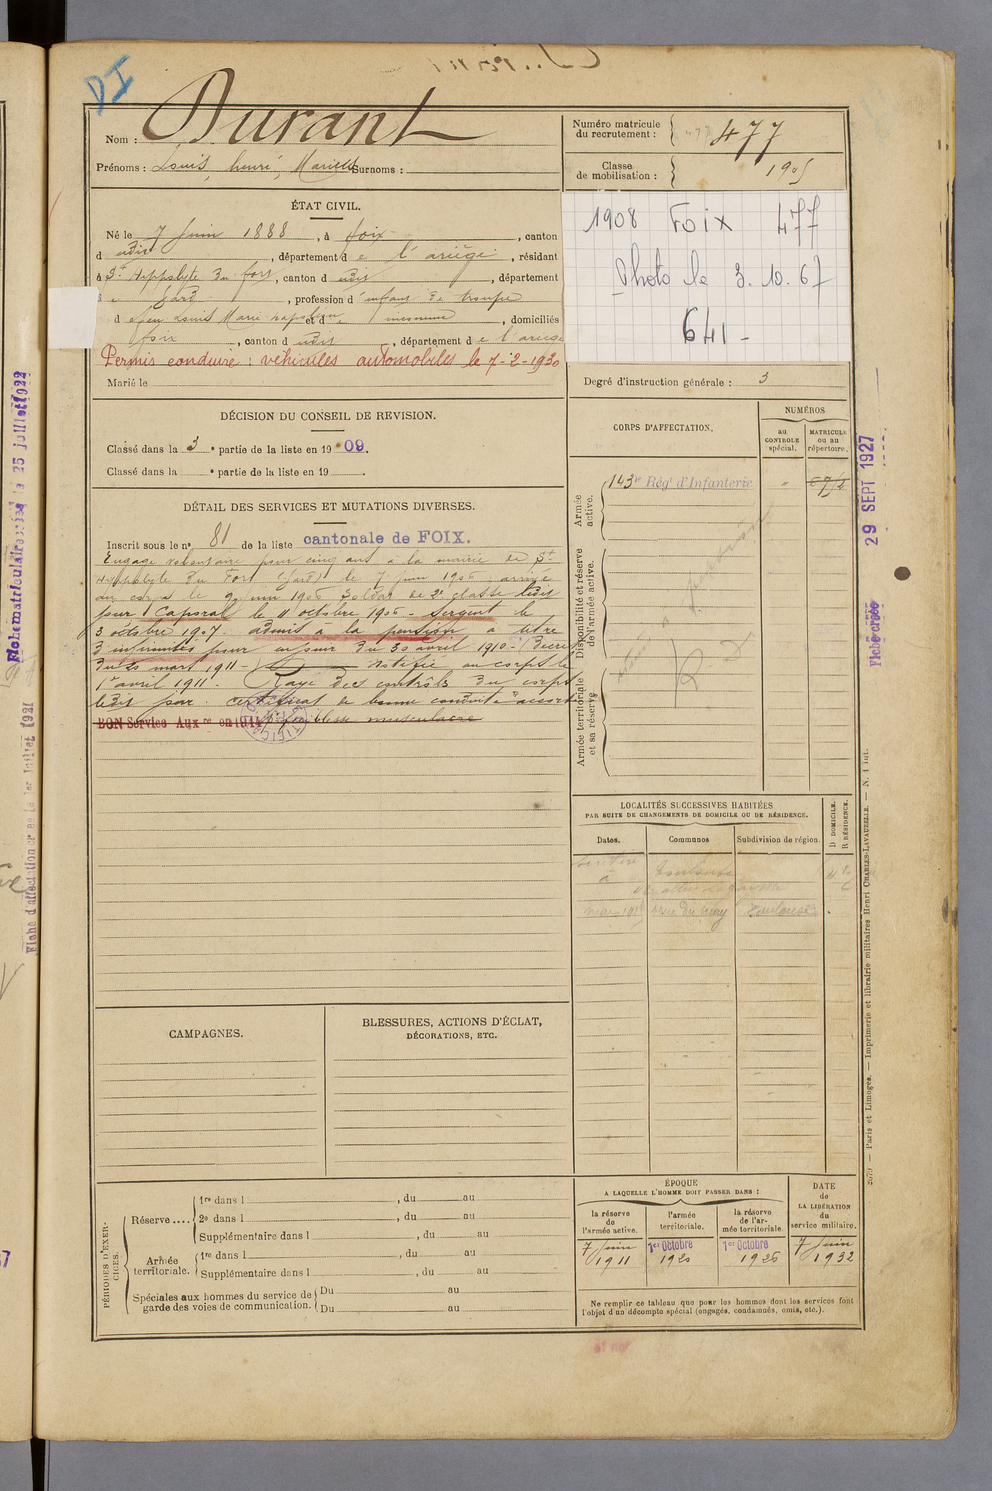 DI
Nom : Durant
Prénoms : Louis, henri, Marcel Surnoms :
Numéro matricule du recrutement : 477
Classe de mobilisation : 1905
1908 Foix 477
Photo le 3.10.67
641 -
ÉTAT CIVIL.
Né le 7 Juin 1888, à foix, canton
d udit, département de l'ariège, résidant
à St hippolyte du fort, canton dudit, département
gard, profession d'enfant de troupe
d feu Louis Marie napoléon et d, domiciliés
foix, canton dudit, département de l'ariège
Permis conduire : véhicules automobiles le 7-2-1930
Marié le
Degré d'instruction générale : 3
DÉCISION DU CONSEIL DE REVISION.
Classé dans la 3e partie de la liste en 1909.
Classé dans la e partie de la liste en 19
DÉTAIL DES SERVICES ET MUTATIONS DIVERSES.
Inscrit sous le no 81 de la liste cantonale de FOIX.
Engagé volontaire pour cinq ans à la mairie de St
Hippolyte du Fort (Gard) le 7 juin 1906, arrivé
au corps le 9 juin 1906 Soldat de 2e classe ledit
jour Caporal le 11 octobre 1906 - Sergent le
3 octobre 1907. admis à la pension à titre
d'infirmités pour en jouir du 30 avril 1910 - (Décret
du 25 mars 1911 - notifié au corps le
1er avril 1911. Rayé des contrôles du corps
ledit jour. certificat de bonne conduite accordé
BON Service Auxre en 1914 p. faiblesse musculaire
CORPS D'AFFECTATION.
NUMÉROS
au CONTROLE spécial.
MATRICULE ou au répertoire.
Armée active.
143e Régt d'Infanterie
Disponibilité et réserve de l'armée active.
Armée territoriale et sa réserve
LOCALITÉS SUCCESSIVES HABITÉES
PAR SUITE DE CHANGEMENTS DE DOMICILE OU DE RÉSIDENCE.
Dates.
Communes
Subdivision de région.
D DOMICILE.
R RÉSIDENCE.
Toulouse
Toulouse
CAMPAGNES.
BLESSURES, ACTIONS D'ÉCLAT,
DÉCORATIONS, ETC.
PÉRIODES D'EXERCICES.
Réserve....
1re dans l , du au
2e dans l , du au
Supplémentaire dans l , du au
Armée territoriale.
1re dans l , du au
Supplémentaire dans l , du au
Spéciales aux hommes du service de garde des voies de communication.
Du au
Du au
ÉPOQUE
A LAQUELLE L'HOMME DOIT PASSER DANS :
la réserve de l'armée active.
l'armée territoriale.
la réserve de l'armée territoriale.
DATE de LA LIBÉRATION du service militaire.
7 Juin 1911
1er Octobre 1920
1er Octobre 1926
7 Juin 1932
Ne remplir ce tableau que pour les hommes dont les services font
l'objet d'un décompte spécial (engagés, condamnés, omis, etc.).
29 SEPT 1927
Fiche créée
Paris et Limoges. — Imprimerie et librairie militaires Henri CHARLES-LAVAUZELLE.
Fiche matriculaire créée le 25 juillet 1922
Fiche d'affectation créée le 1er Juillet 1921